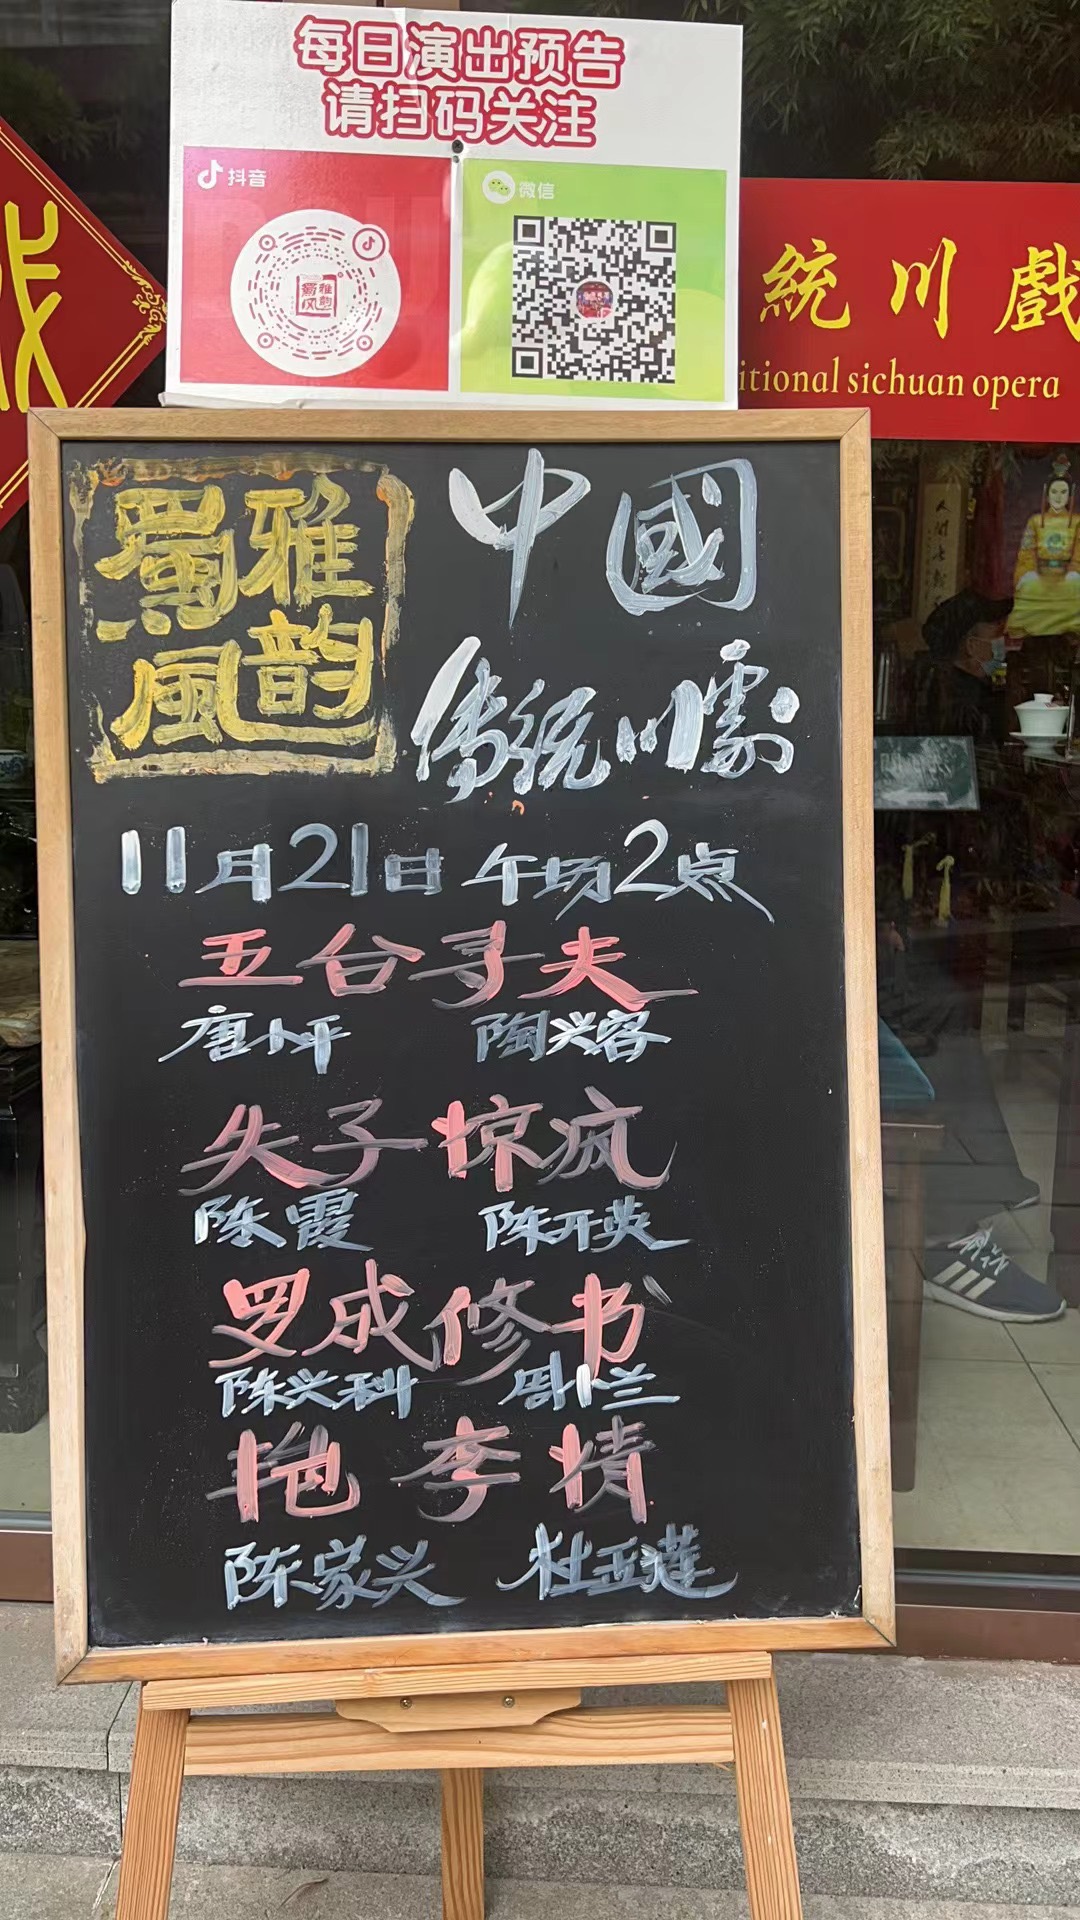 每日演出预告
请扫码关注
抖音
微信
蜀風
雅韵
統川戲
itional sichuan opera
蜀雅
風韵
中國
傳統川劇
11月21日 午场2点
五台寻夫
唐小平 陶兴容
失子惊疯
陈霞 陈开英
罗成修书
陈兴科 周小兰
艳李情
陈家兴 杜亚莲